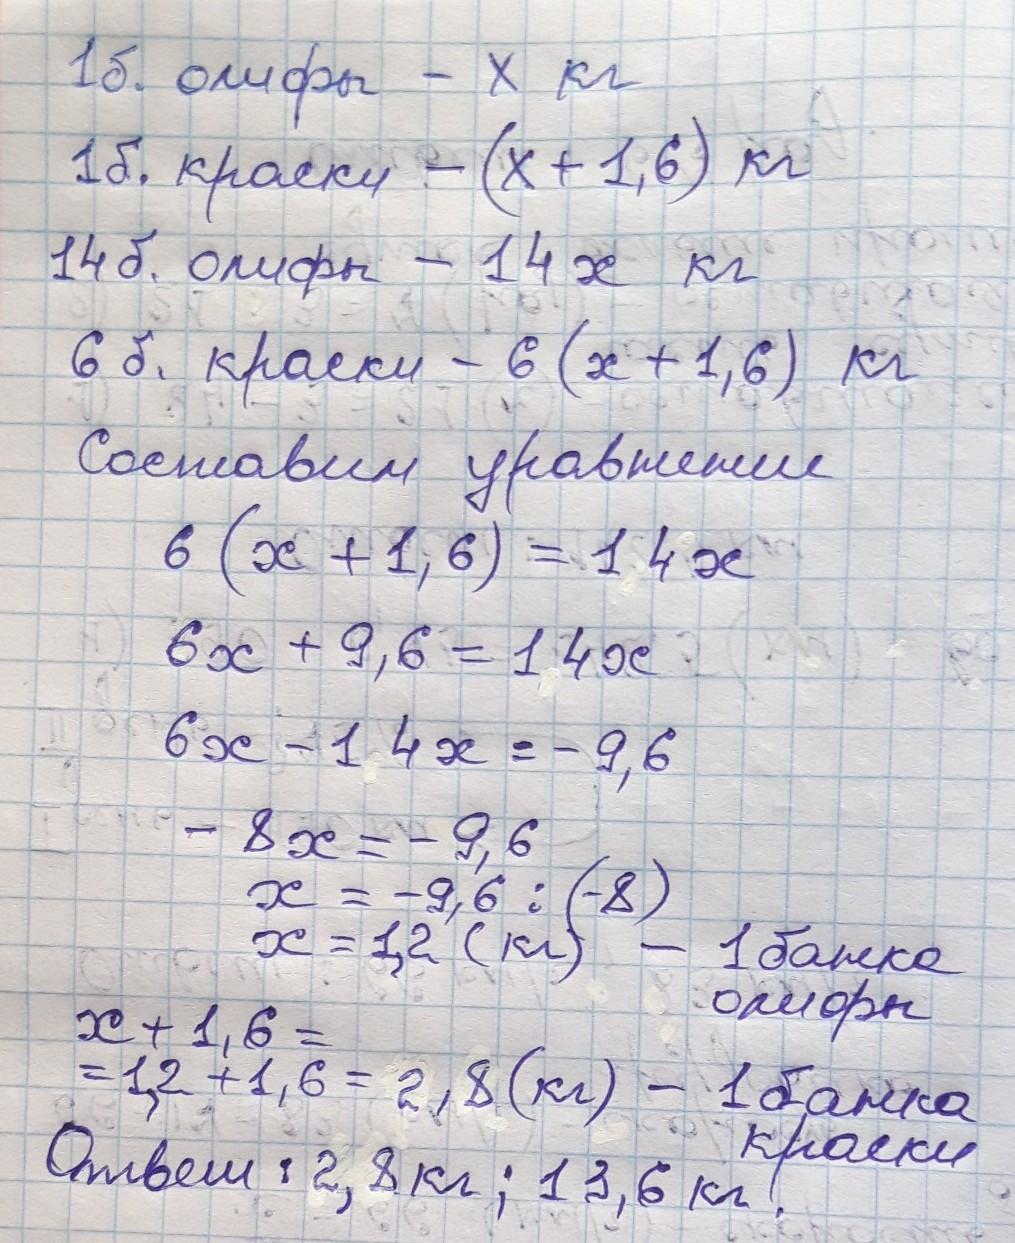 1б. олифы – х кг
1б. краски – (х + 1,6) кг
14б. олифы – 14х кг
6 б. краски – 6 (х + 1,6) кг
Составим уравнение
6 (х + 1,6) = 14х
6х + 9,6 = 14х
6х – 14х = -9,6
- 8х = - 9,6
х = -9,6 : (-8)
х = 1,2 (кг) – 1 банка
олифы
х + 1,6 =
= 1,2 + 1,6 = 2,8 (кг) – 1 банка
краски
Ответ: 2,8 кг; 13,6 кг.